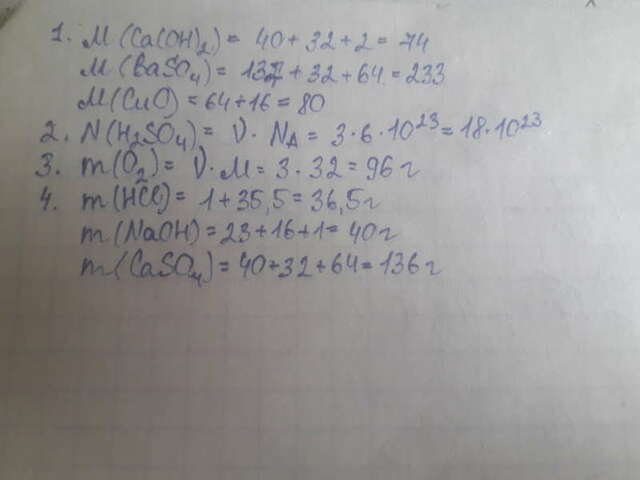 1. M(Ca(OH)₂) = 40+32+2=74
M(BaSO₄) = 137+32+64=233
M(CuO) = 64+16=80
2. N(H₂SO₄) = ν·Nᴀ=3·6·10²³=18·10²³
3. m(O₂) = ν·M=3·32=96г
4. m(HCl) = 1+35,5=36,5г
m(NaOH)=23+16+1=40г
m(CaSO₄)=40+32+64=136г